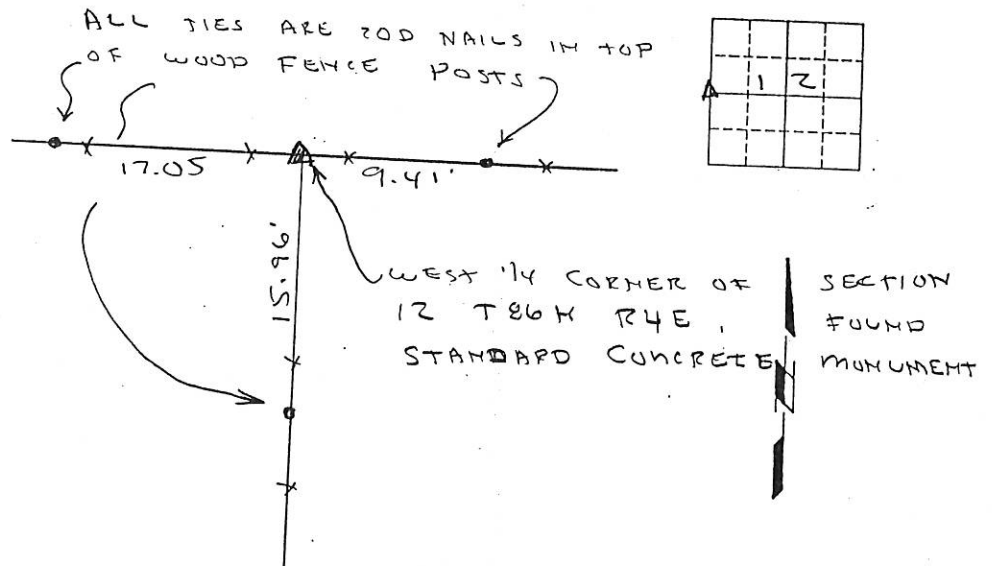 ALL TIES ARE 20D NAILS IN TOP
OF WOOD FENCE POSTS
1 2
17.05
9.41'
15.96'
WEST 1/4 CORNER OF SECTION
12 T86N R4E, FOUND
STANDARD CONCRETE MONUMENT
N